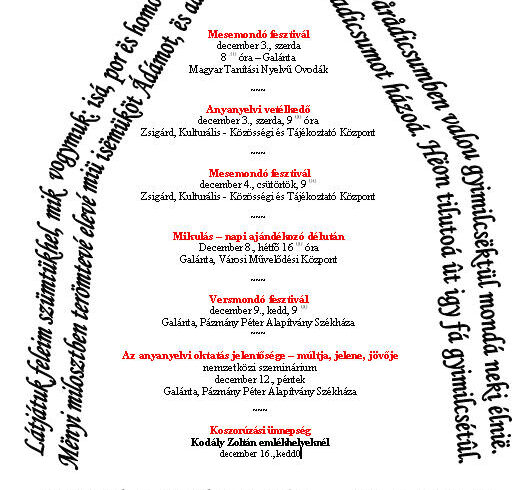 Látjátuk feleim szümtükhel, mik vogymuk: isá, por és homo
Ményi milosztben terömtevé elevé miü isëmüköt Ádámot, és a
Mesemondó fesztivál
december 3., szerda
8 óra – Galánta
Magyar Tanítási Nyelvű Óvodák
~~~
Anyanyelvi vetélkedő
december 3., szerda, 9 óra
Zsigárd, Kulturális - Közösségi és Tájékoztató Központ
~~~
Mesemondó fesztivál
december 4., csütörtök, 9
Zsigárd, Kulturális - Közösségi és Tájékoztató Központ
~~~
Mikulás – napi ajándékozó délután
December 8., hétfő 16 óra
Galánta, Városi Művelődési Központ
~~~
Versmondó fesztivál
december 9., kedd, 9
Galánta, Pázmány Péter Alapítvány Székháza
~~~
Az anyanyelvi oktatás jelentősége – múltja, jelene, jövője
nemzetközi szeminárium
december 12., péntek
Galánta, Pázmány Péter Alapítvány Székháza
~~~
Koszorúzási ünnepség
Kodály Zoltán emlékhelyeknél
december 16., kedd0
árádicsumben valou gyimilcsëktül mondá neki élnië.
adicsumot házoá. Héon tilutoá űt igy fá gyimilcsétül.